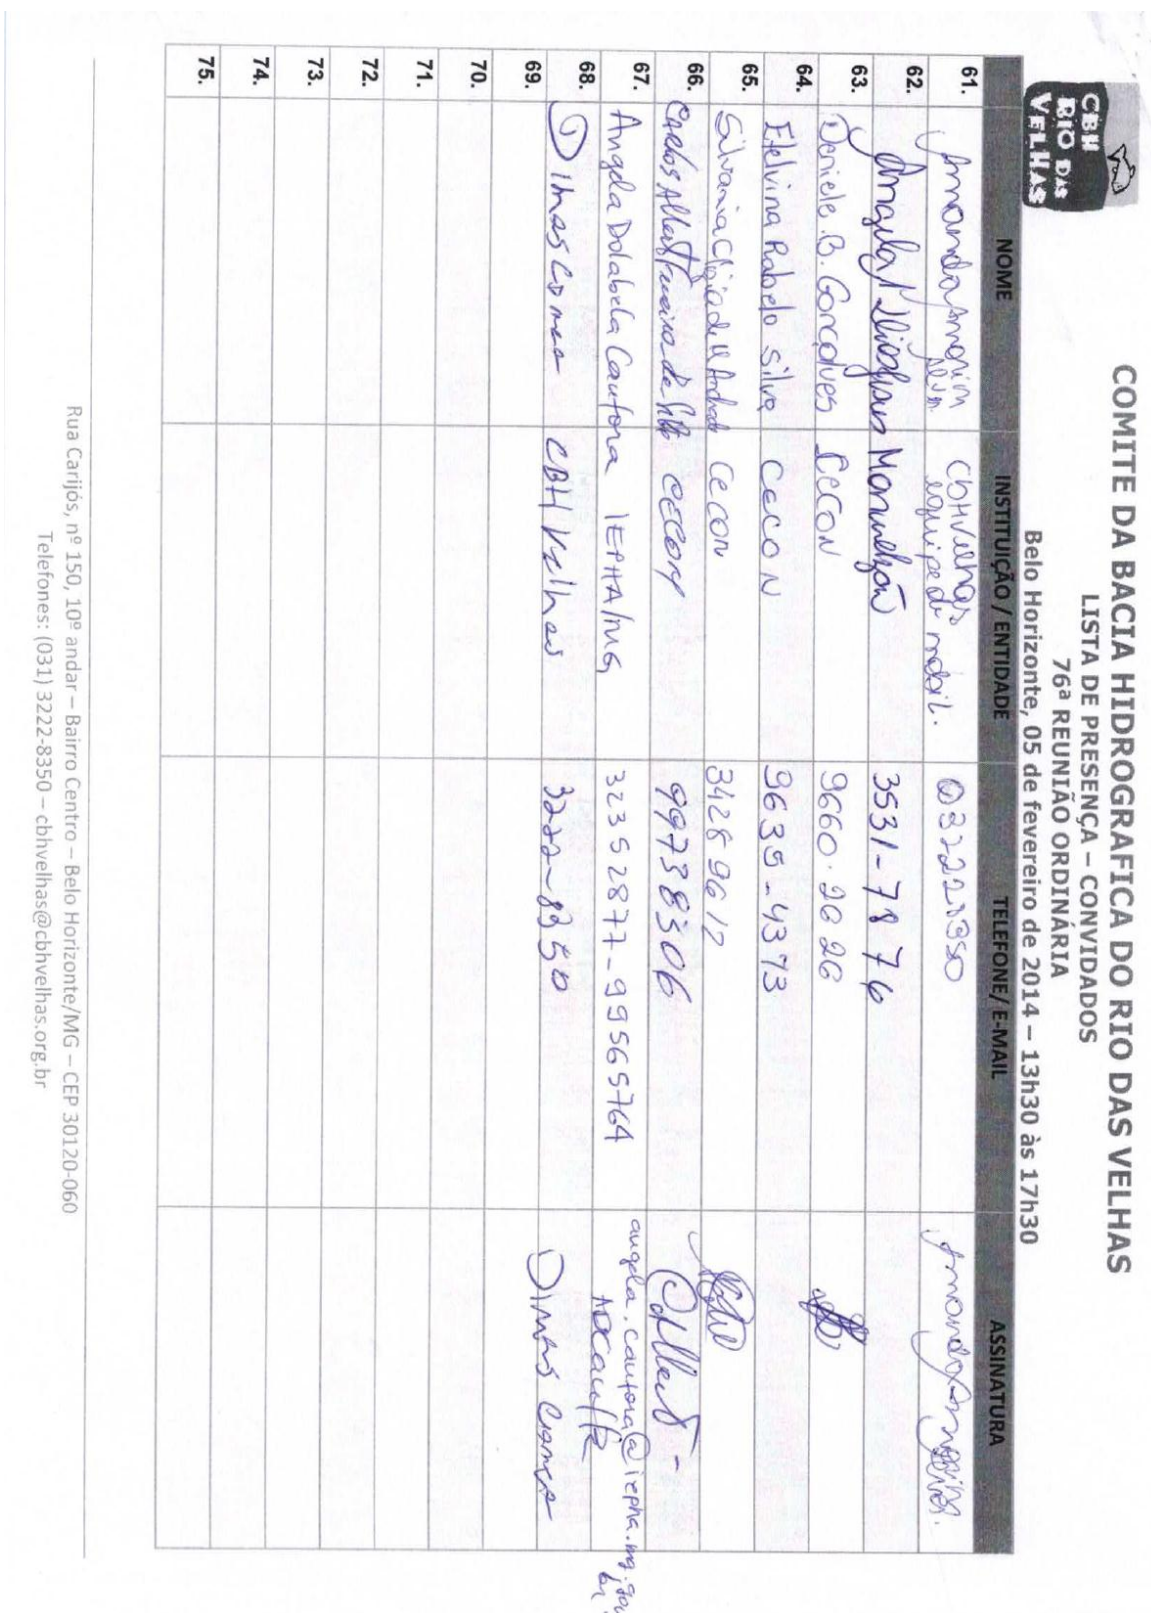 CBH
RIO DAS
VELHAS
COMITE DA BACIA HIDROGRAFICA DO RIO DAS VELHAS
LISTA DE PRESENÇA – CONVIDADOS
76ª REUNIÃO ORDINÁRIA
Belo Horizonte, 05 de fevereiro de 2014 – 13h30 às 17h30
NOME INSTITUIÇÃO / ENTIDADE TELEFONE/ E-MAIL ASSINATURA
61. Amanda Amorim CBHVelhas
equipe de mobil. 032228350
62. Angela Manuelzão 3531-7876
63. Daniele B. Gonçalves CECON 9660.2626
64. Etelvina Rabelo Silva CECON 9639-4373
65. Silvania de Andrade Cecon 34289612
66. Carlos CECON 99738306
67. Angela Dolabela Cantora IEPHA/MG 32352877-99565764 angela.cantora@iepha.mg.gov
br
68. Dimas Correa CBH Velhas 3222-8350 Dimas Correa
69.
70.
71.
72.
73.
74.
75.
Rua Carijós, nº 150, 10º andar – Bairro Centro – Belo Horizonte/MG – CEP 30120-060
Telefones: (031) 3222-8350 – cbhvelhas@cbhvelhas.org.br